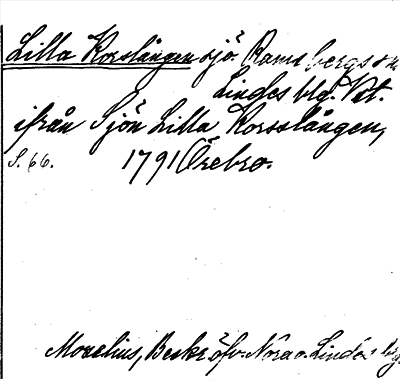 Lilla Korslången sjö. Ramsbergs o n.
Lindes blg. Vst.
ifrån Sjön Lilla Korsslången,
S. 66. 1791 Örebro.
Morelius, Beskr. öfv. Nora o. Linde